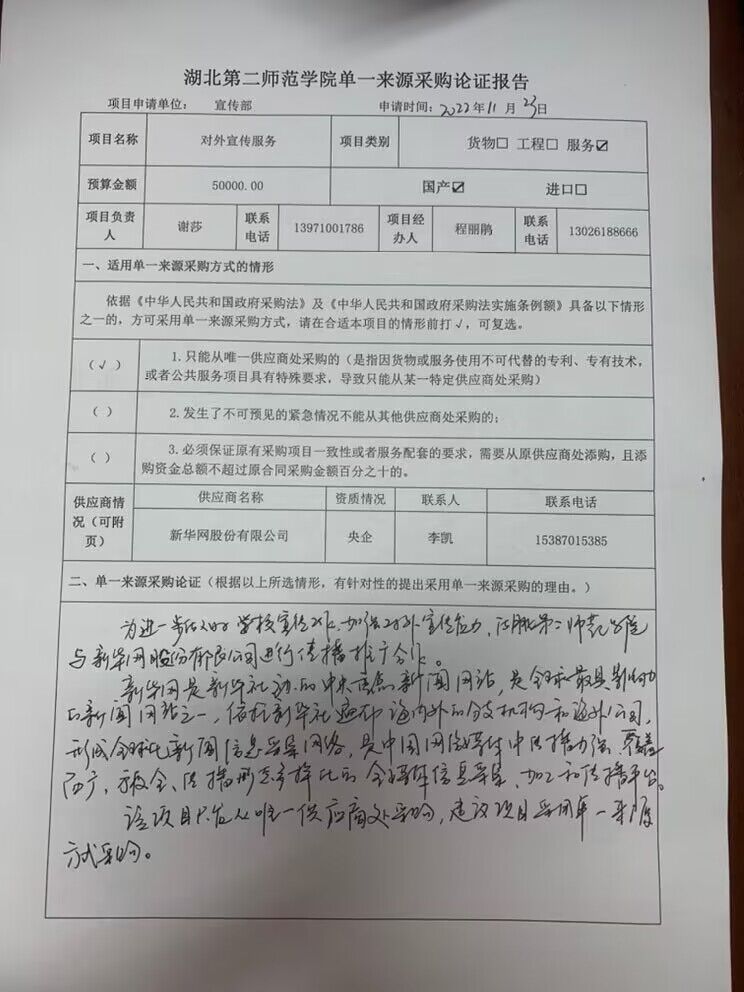 湖北第二师范学院单一来源采购论证报告
项目申请单位： 宣传部 申请时间：2022年11月23日
项目名称 对外宣传服务 项目类别 货物□ 工程□ 服务☑
预算金额 50000.00 国产☑ 进口□
项目负责人 谢莎 联系电话 13971001786 项目经办人 程丽鹃 联系电话 13026188666
一、适用单一来源采购方式的情形
依据《中华人民共和国政府采购法》及《中华人民共和国政府采购法实施条例额》具备以下情形
之一的，方可采用单一来源采购方式，请在合适本项目的情形前打√，可复选。
（√） 1.只能从唯一供应商处采购的（是指因货物或服务使用不可代替的专利、专有技术，
或者公共服务项目具有特殊要求，导致只能从某一特定供应商处采购）
（ ） 2.发生了不可预见的紧急情况不能从其他供应商处采购的；
（ ） 3.必须保证原有采购项目一致性或者服务配套的要求，需要从原供应商处添购，且添
购资金总额不超过原合同采购金额百分之十的。
供应商情况（可附页） 供应商名称 资质情况 联系人 联系电话
新华网股份有限公司 央企 李凯 15387015385
二、单一来源采购论证（根据以上所选情形，有针对性的提出采用单一来源采购的理由。）
为进一步 学校宣传 ，加强对外宣传能力，湖北第二师范学院
与新华网股份有限公司进行传播推广合作。
新华网是新华社主办的中央重点新闻网站，是全球最具影响力
的新闻网站之一，依托新华社遍布海内外的分支机构和海外公司，
形成全球化新闻信息采集网络，是中国网络媒体中传播力强、覆盖
面广、 全、传播形态多样化的全媒体信息采集、加工和传播平台。
该项目只能从唯一供应商处采购，建议项目采用单一来源
方式采购。